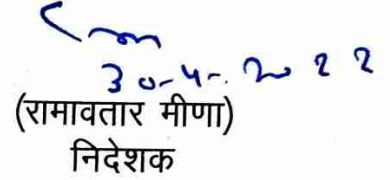 30-4-2022
(रामावतार मीणा)
निदेशक